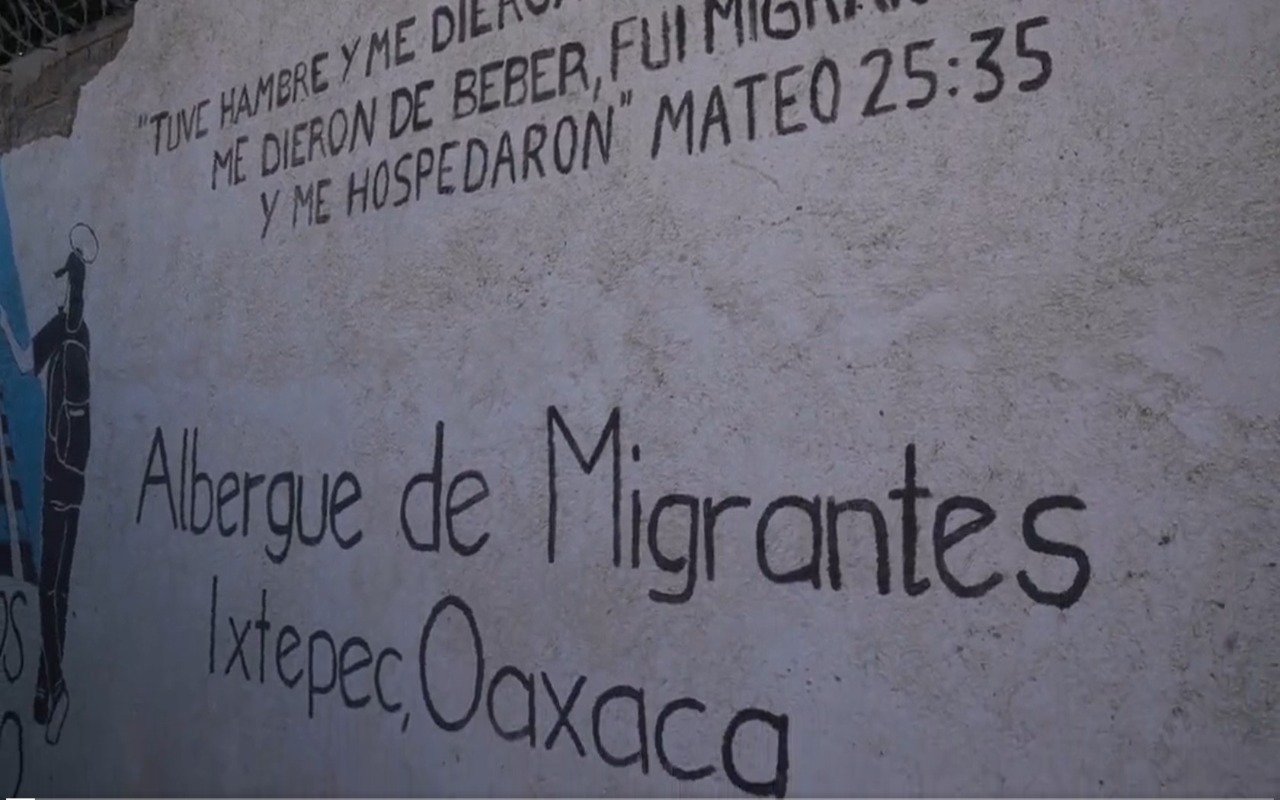 "TUVE HAMBRE Y ME
ME DIERON DE BEBER, FUI
Y ME HOSPEDARON" MATEO 25:35
Albergue de Migrantes
Ixtepec, Oaxaca